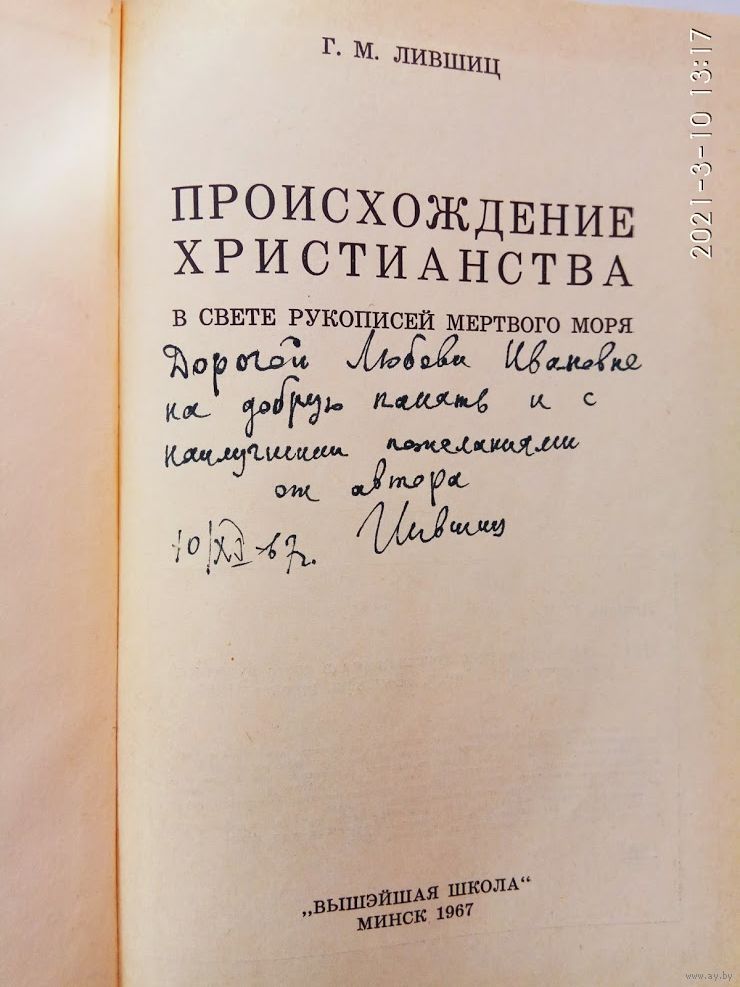 Г. М. ЛИВШИЦ
ПРОИСХОЖДЕНИЕ
ХРИСТИАНСТВА
В СВЕТЕ РУКОПИСЕЙ МЕРТВОГО МОРЯ
Дорогой Любови Ивановне
на добрую память и с
наилучшими пожеланиями
от автора
10/XI 67г. Лившиц
„ВЫШЭЙШАЯ ШКОЛА“
МИНСК 1967
2021-3-10 13:17
www.ay.by